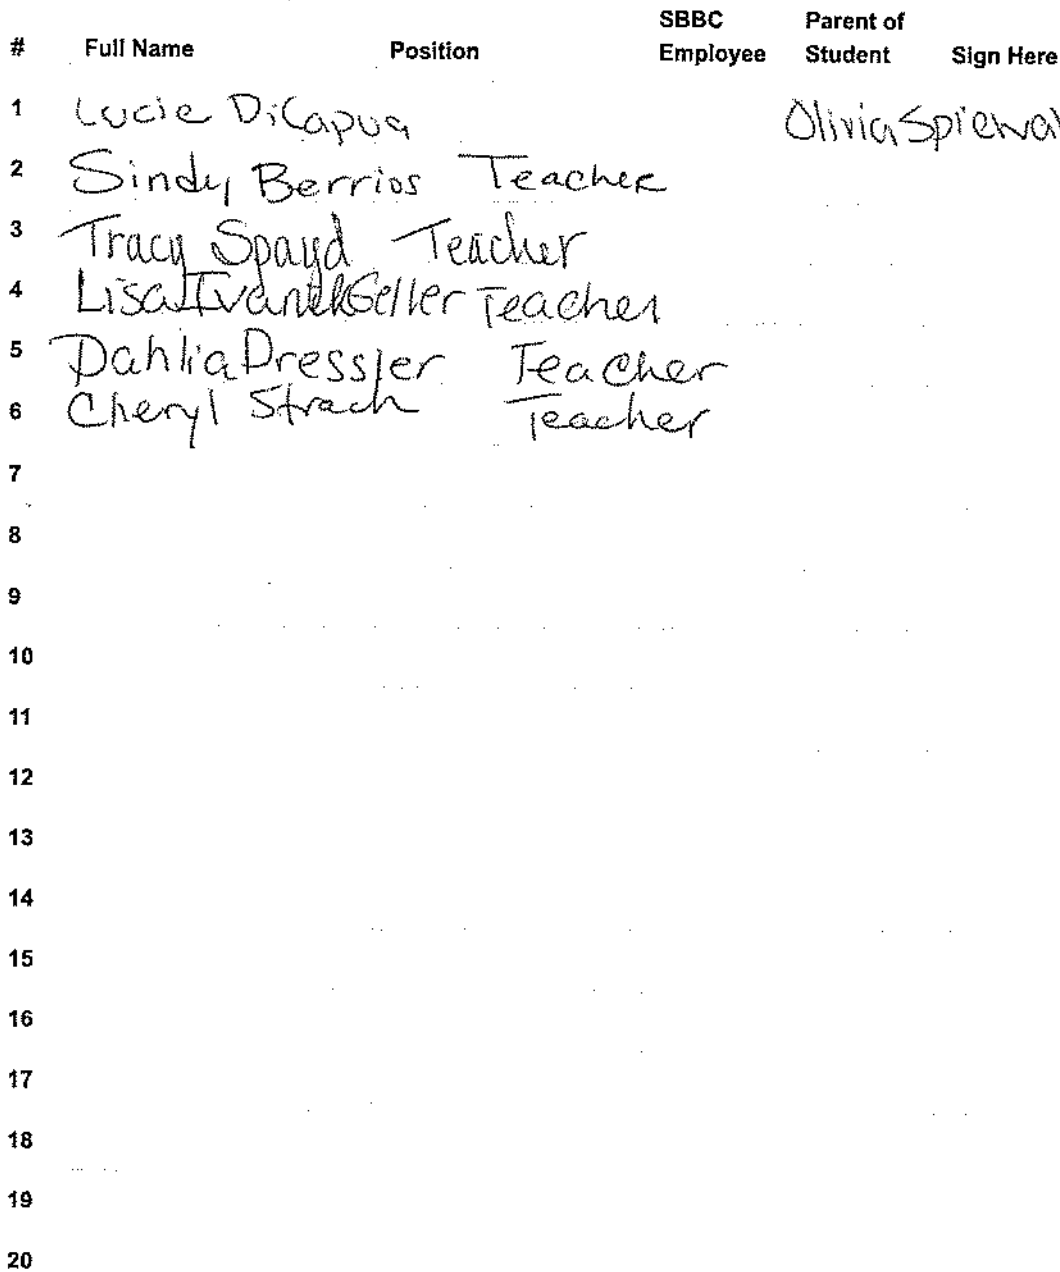 # Full Name Position SBBC Employee Parent of Student Sign Here
1 Lucie DiCapua Olivia Spiewa
2 Sindy Berrios Teacher
3 Tracy Spayd Teacher
4 Lisa Geller Teacher
5 Dahlia Dressler Teacher
6 Cheryl Strach Teacher
7
8
9
10
11
12
13
14
15
16
17
18
19
20